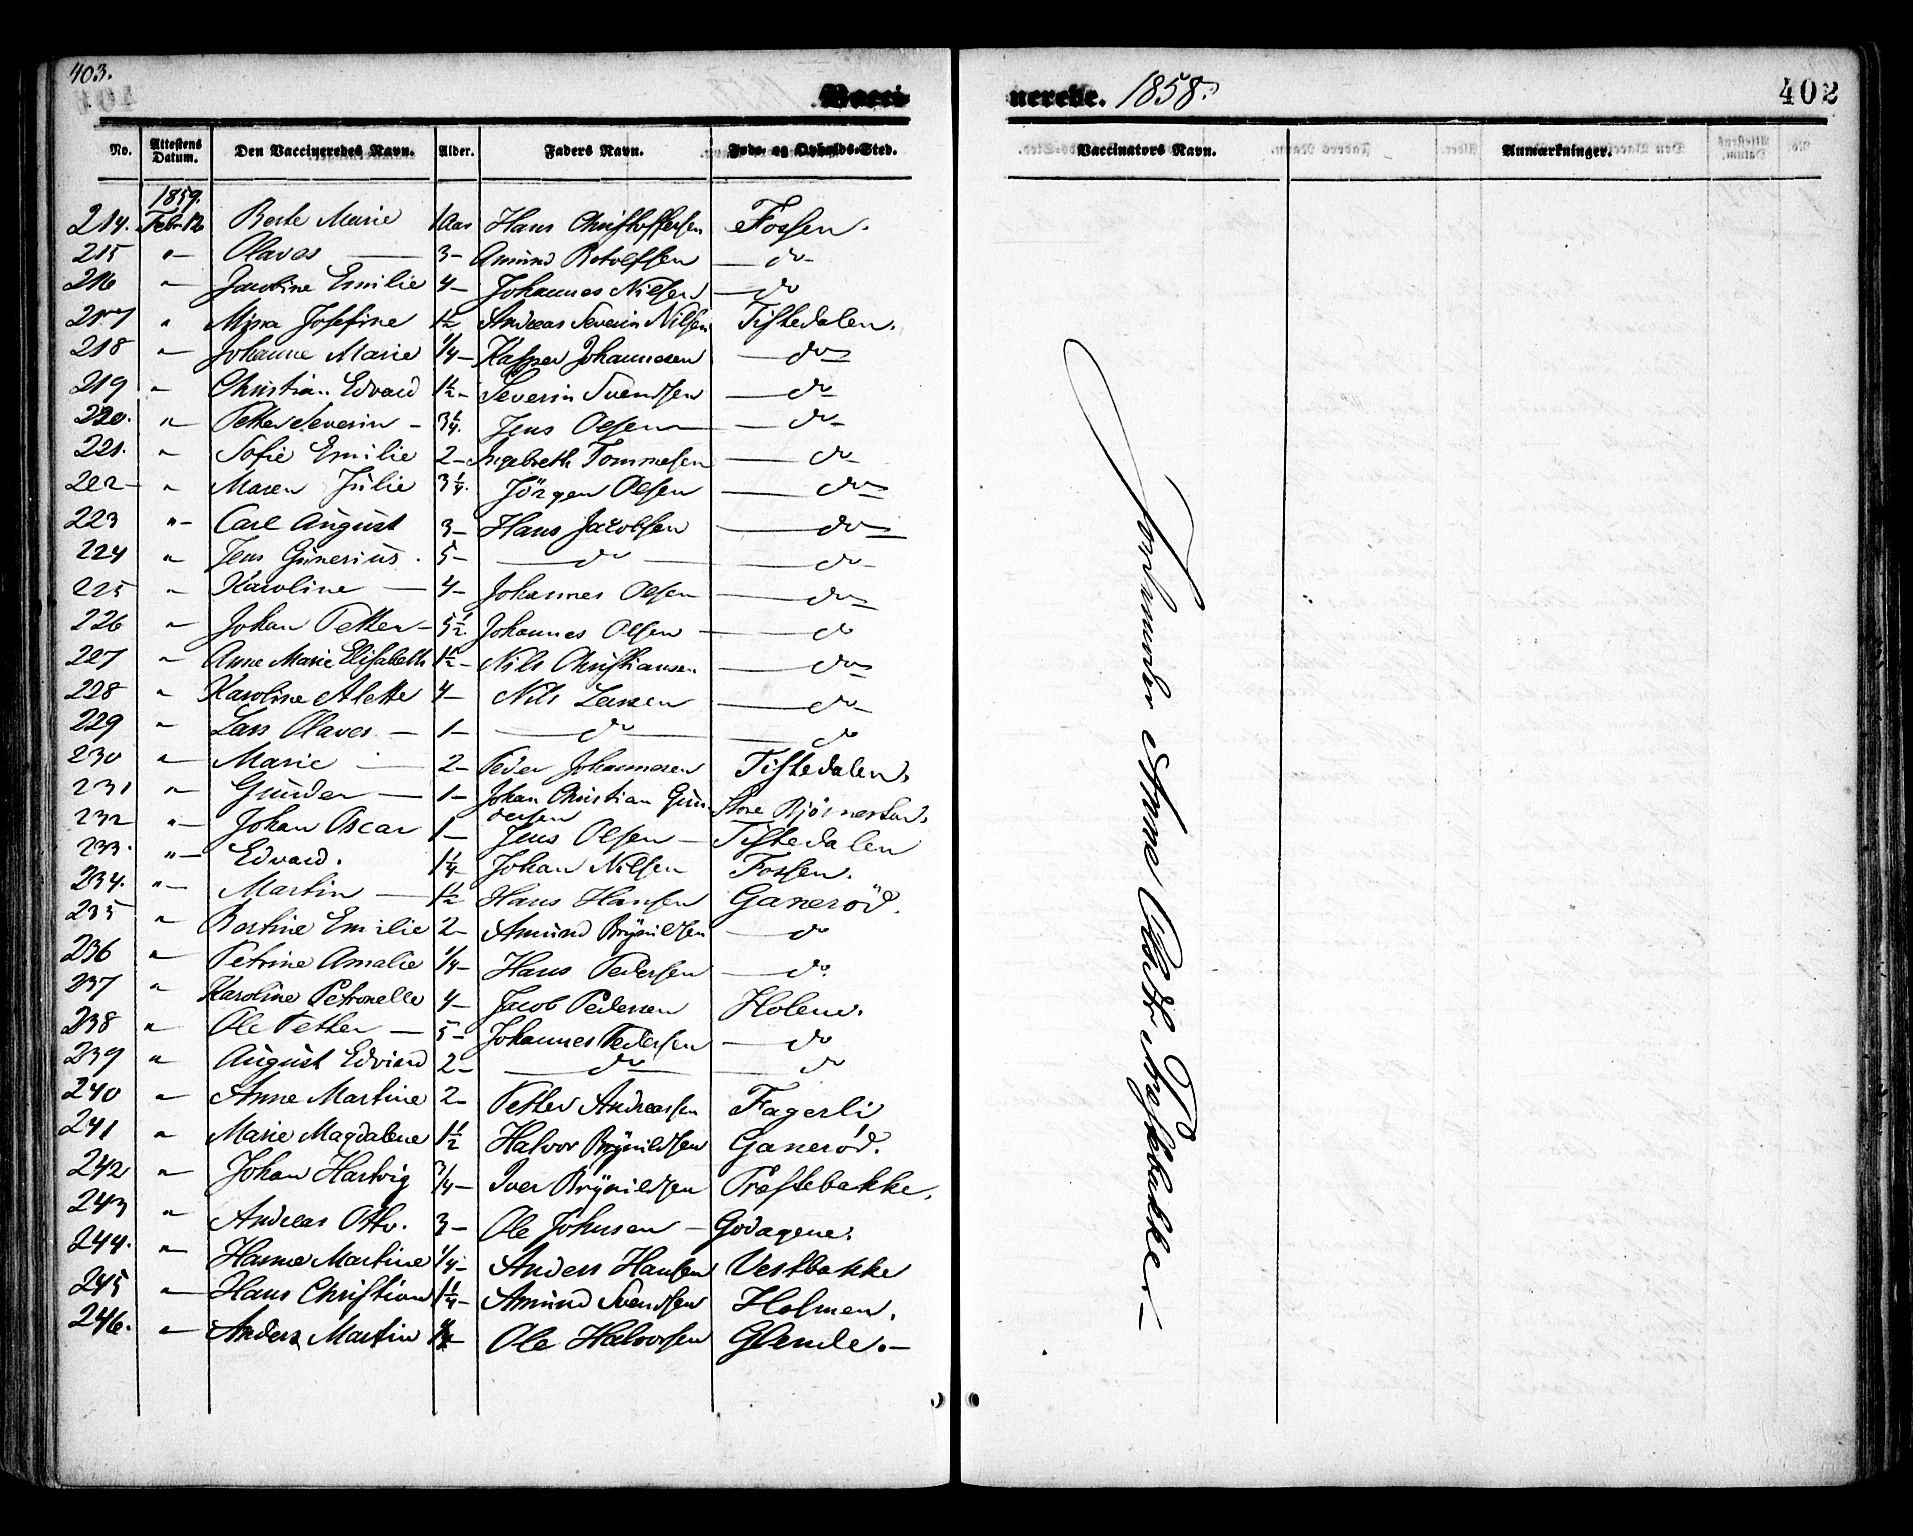 403.
Vacci
No. Attestens Datum. Den Vaccineredes Navn. Alder. Faders Navn. Føde- og Opholds-Sted.
1859.
214. Febr. 12 Berte Marie 1 Aar Hans Christoffersen Fossen.
215 " Olaves 3 - Amund Rotolfsen do
216 " Jacobine Emilie 4 - Johannes Nilsen do
217 " Mina Josefine 1½ Andreas Severin Nilsen Tistedalen.
218 " Johanne Marie ¼ - Kasper Johannesen do
219 " Christian Edvard 1½ - Severin Svendsen do
220. " Petter Severin - 3¼. Jens Olsen do
221. " Sofie Emilie 2 - Ingebreth Tommesen do
222 - " Maren Julie 3¼. Jörgen Olsen do
223 " Carl August 3 - Hans Jacobsen do
224 " Jens Gunerius. 5 - do do
225 " Karoline 4 - Johannes Olsen do
226 " Johan Petter - 5½ Johannes Olsen do
227 " Anne Marie Elisabeth 1½ - Nils Christiansen. do
228 " Karoline Alette 4 - Nils Larsen do
229 " Lars Olaves - 1 - do do
230 " Marie 2 - Peder Johannesen Tistedalen.
231 " Gunder 1 - Johan Christian Gun- Store Bjørnestad.
dersen
232 " Johan Oscar 1 - Jens Olsen - Tistedalen
233. " Edvard. 1¼ Johan Nilsen Fossen.
234. " Martin 1½ Hans Hansen Ganeröd.
235 " Bertine Emilie 2 - Amund Brynildsen do
236 " Petrine Amalie ¼ - Hans Pedersen do.
237 " Karoline Petronelle 4 - Jacob Pedersen Holene.
238 " Ole Petter - 5 - Johannes Pedersen do
239 " August Edvard 2 - do do
240 " Anne Martine 2 - Petter Andreassen Fagerli
241 " Marie Magdalene 1½ Halvor Brynildsen Ganeröd.
242 " Johan Hartvig ¾ - Iver Brynildsen Præstebakke.
243 " Andreas Otto. 3 - Ole Johnsen - Godagene.
244. " Hanne Martine ¼ - Anders Hansen Vestbakke
245 " Hans Christian 1¼ - Amund Svendsen Holmen.
246. " Anders Martin Ole Halvorsen Glende. -
nerede. 1858.
402
Vaccinators Navn. Anmærkninger.
Jordmoder Anne Præstebakke -